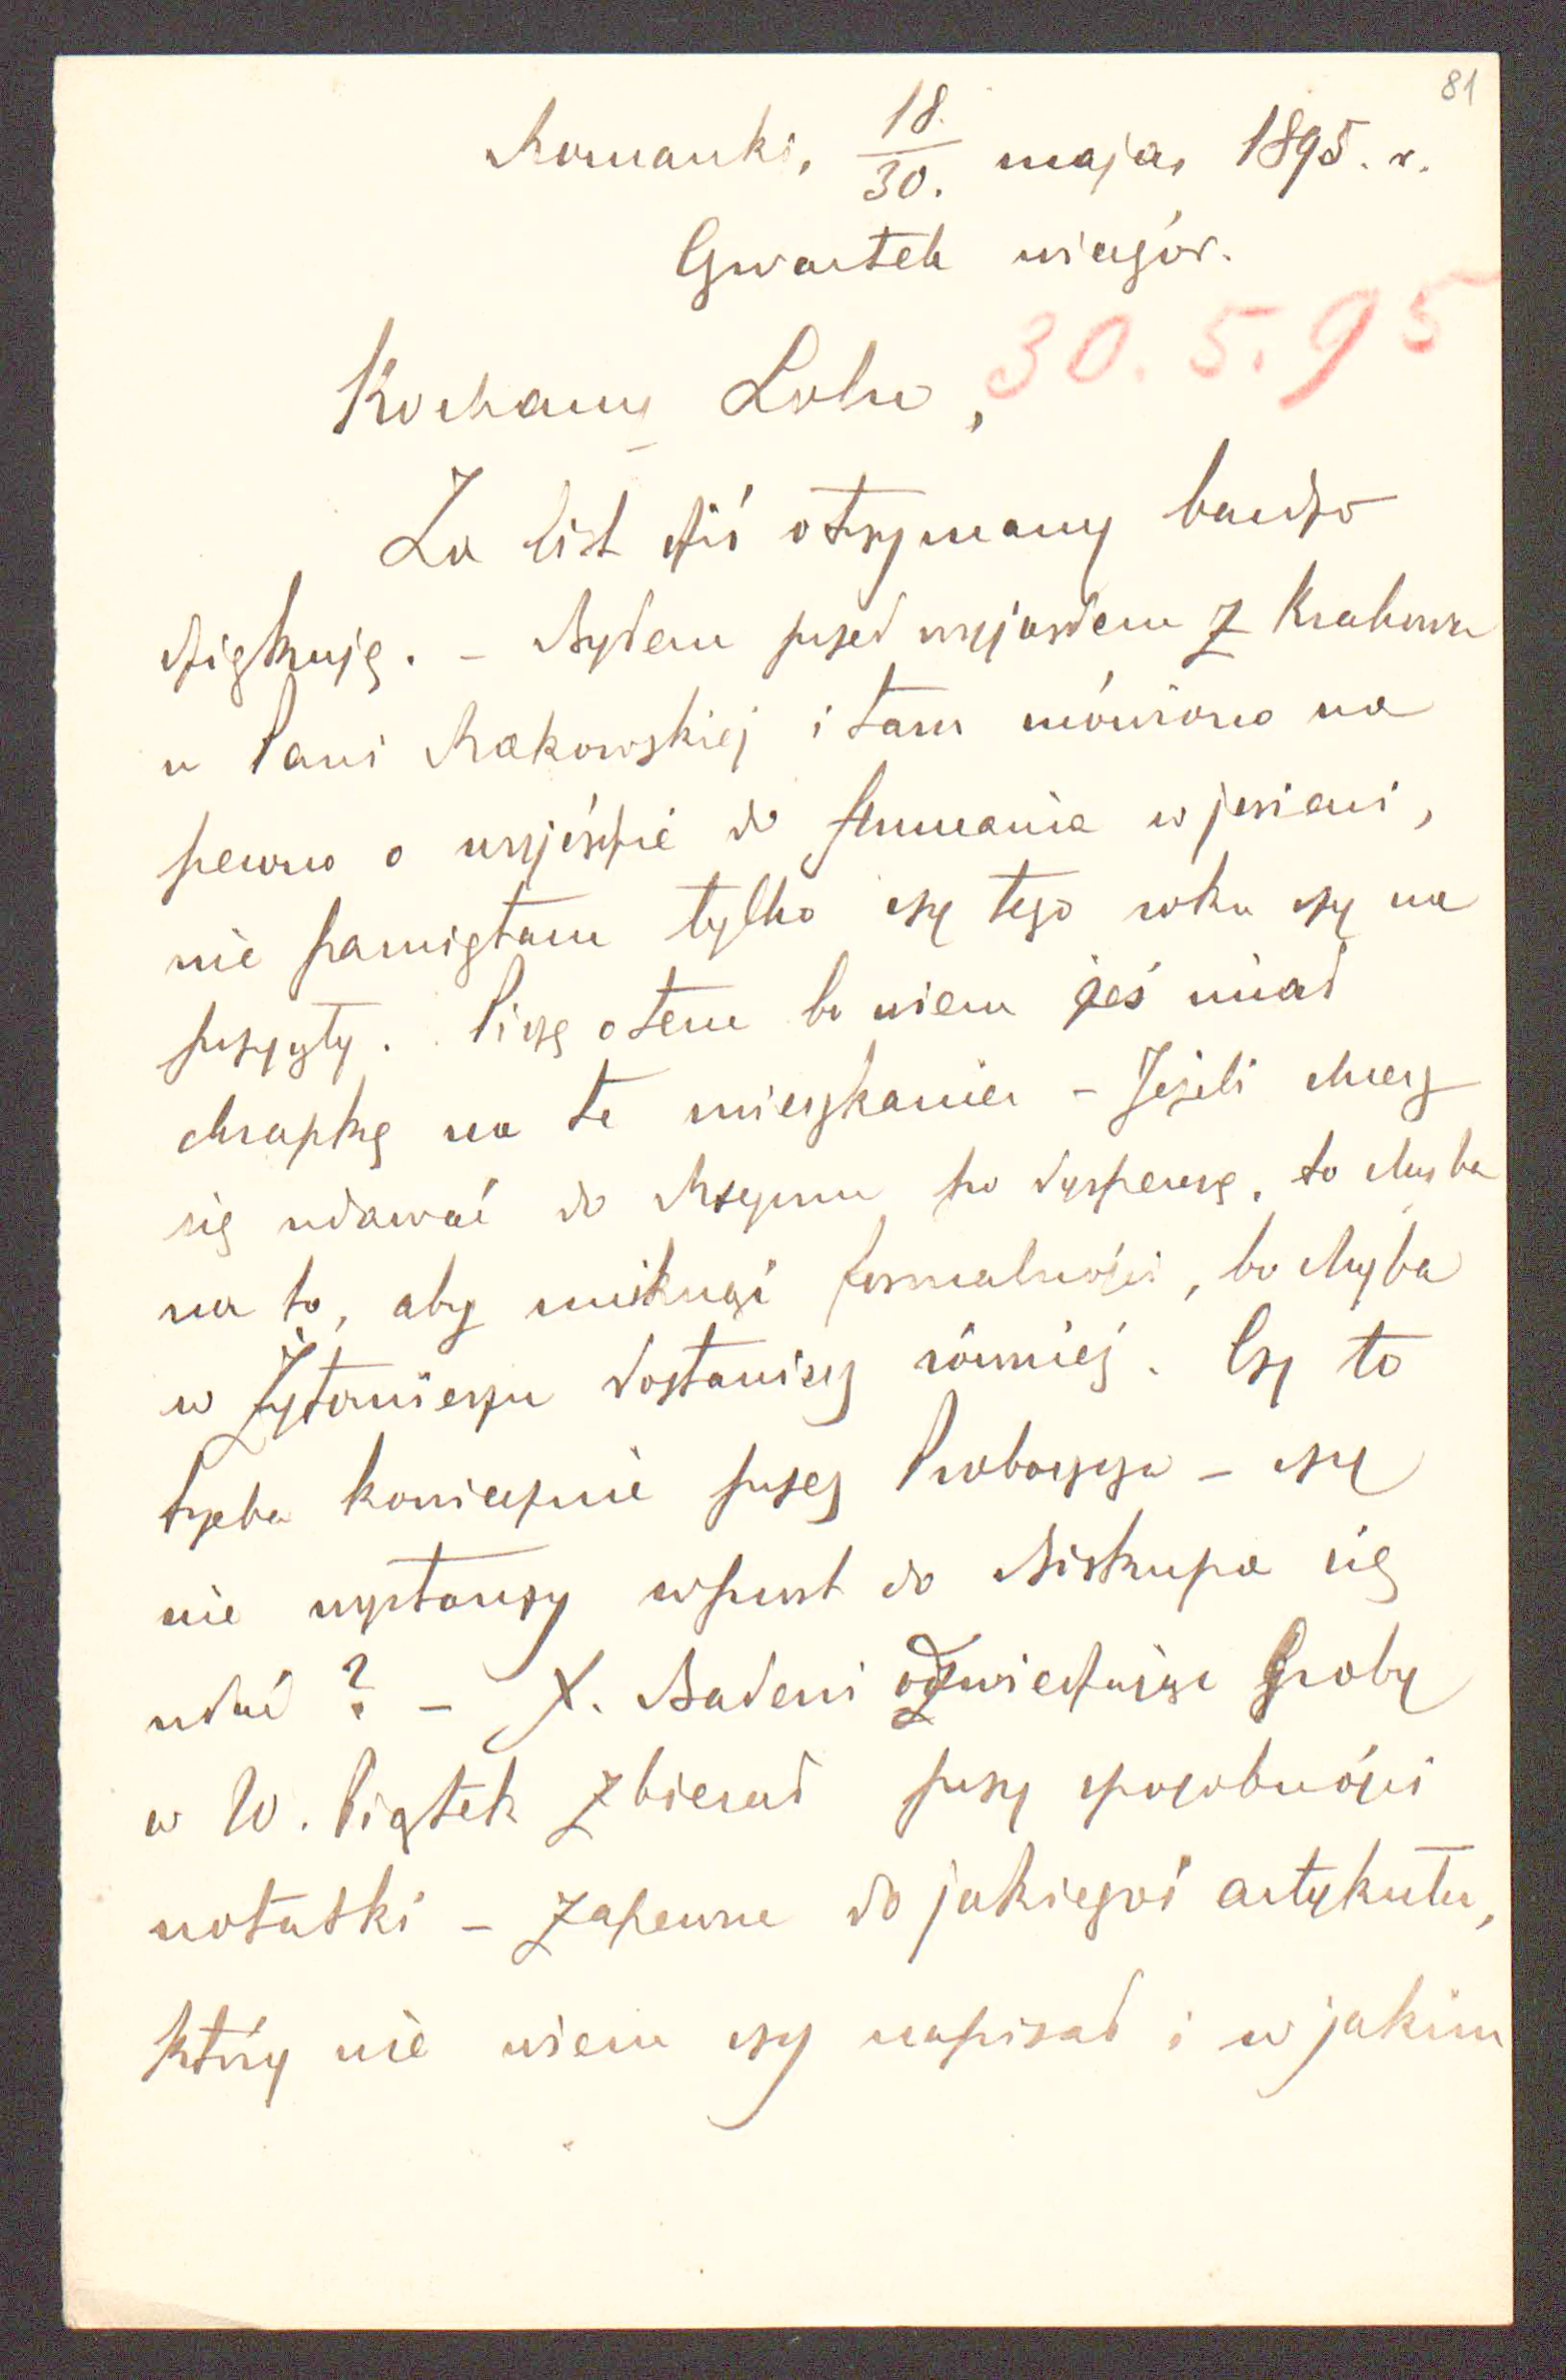 81
Romanki, 18./30. maja, 1895. r.
Czwartek wieczór.
30. 5. 95
Kochany Lolu,
Za list dziś otrzymany bardzo
dziękuję. – Byłem przed wyjazdem z Krakowa
u Pani Rakowskiej i tam mówiono na
pewno o wyjeździe do Poznania w jesieni,
nie pamiętam tylko czy tego roku czy na
przyszły. Piszę o tem bo wiem żeś miał
chrapkę na te mieszkanie – Jeżeli chcesz
się udawać do Rzymu po dyspensę, to chyba
na to, aby uniknąć formalności, bo chyba
w Żytomierzu dostaniesz również. Czy to
trzeba koniecznie przez Proboszcza – czy
nie wystarczy wprost do Biskupa się
udać? – X. Badeni odwiedzając Groby
w W. Piątek zbierał przy sposobności
notatki – zapewne do jakiegoś artykułu,
który nie wiem czy napisał i w jakim